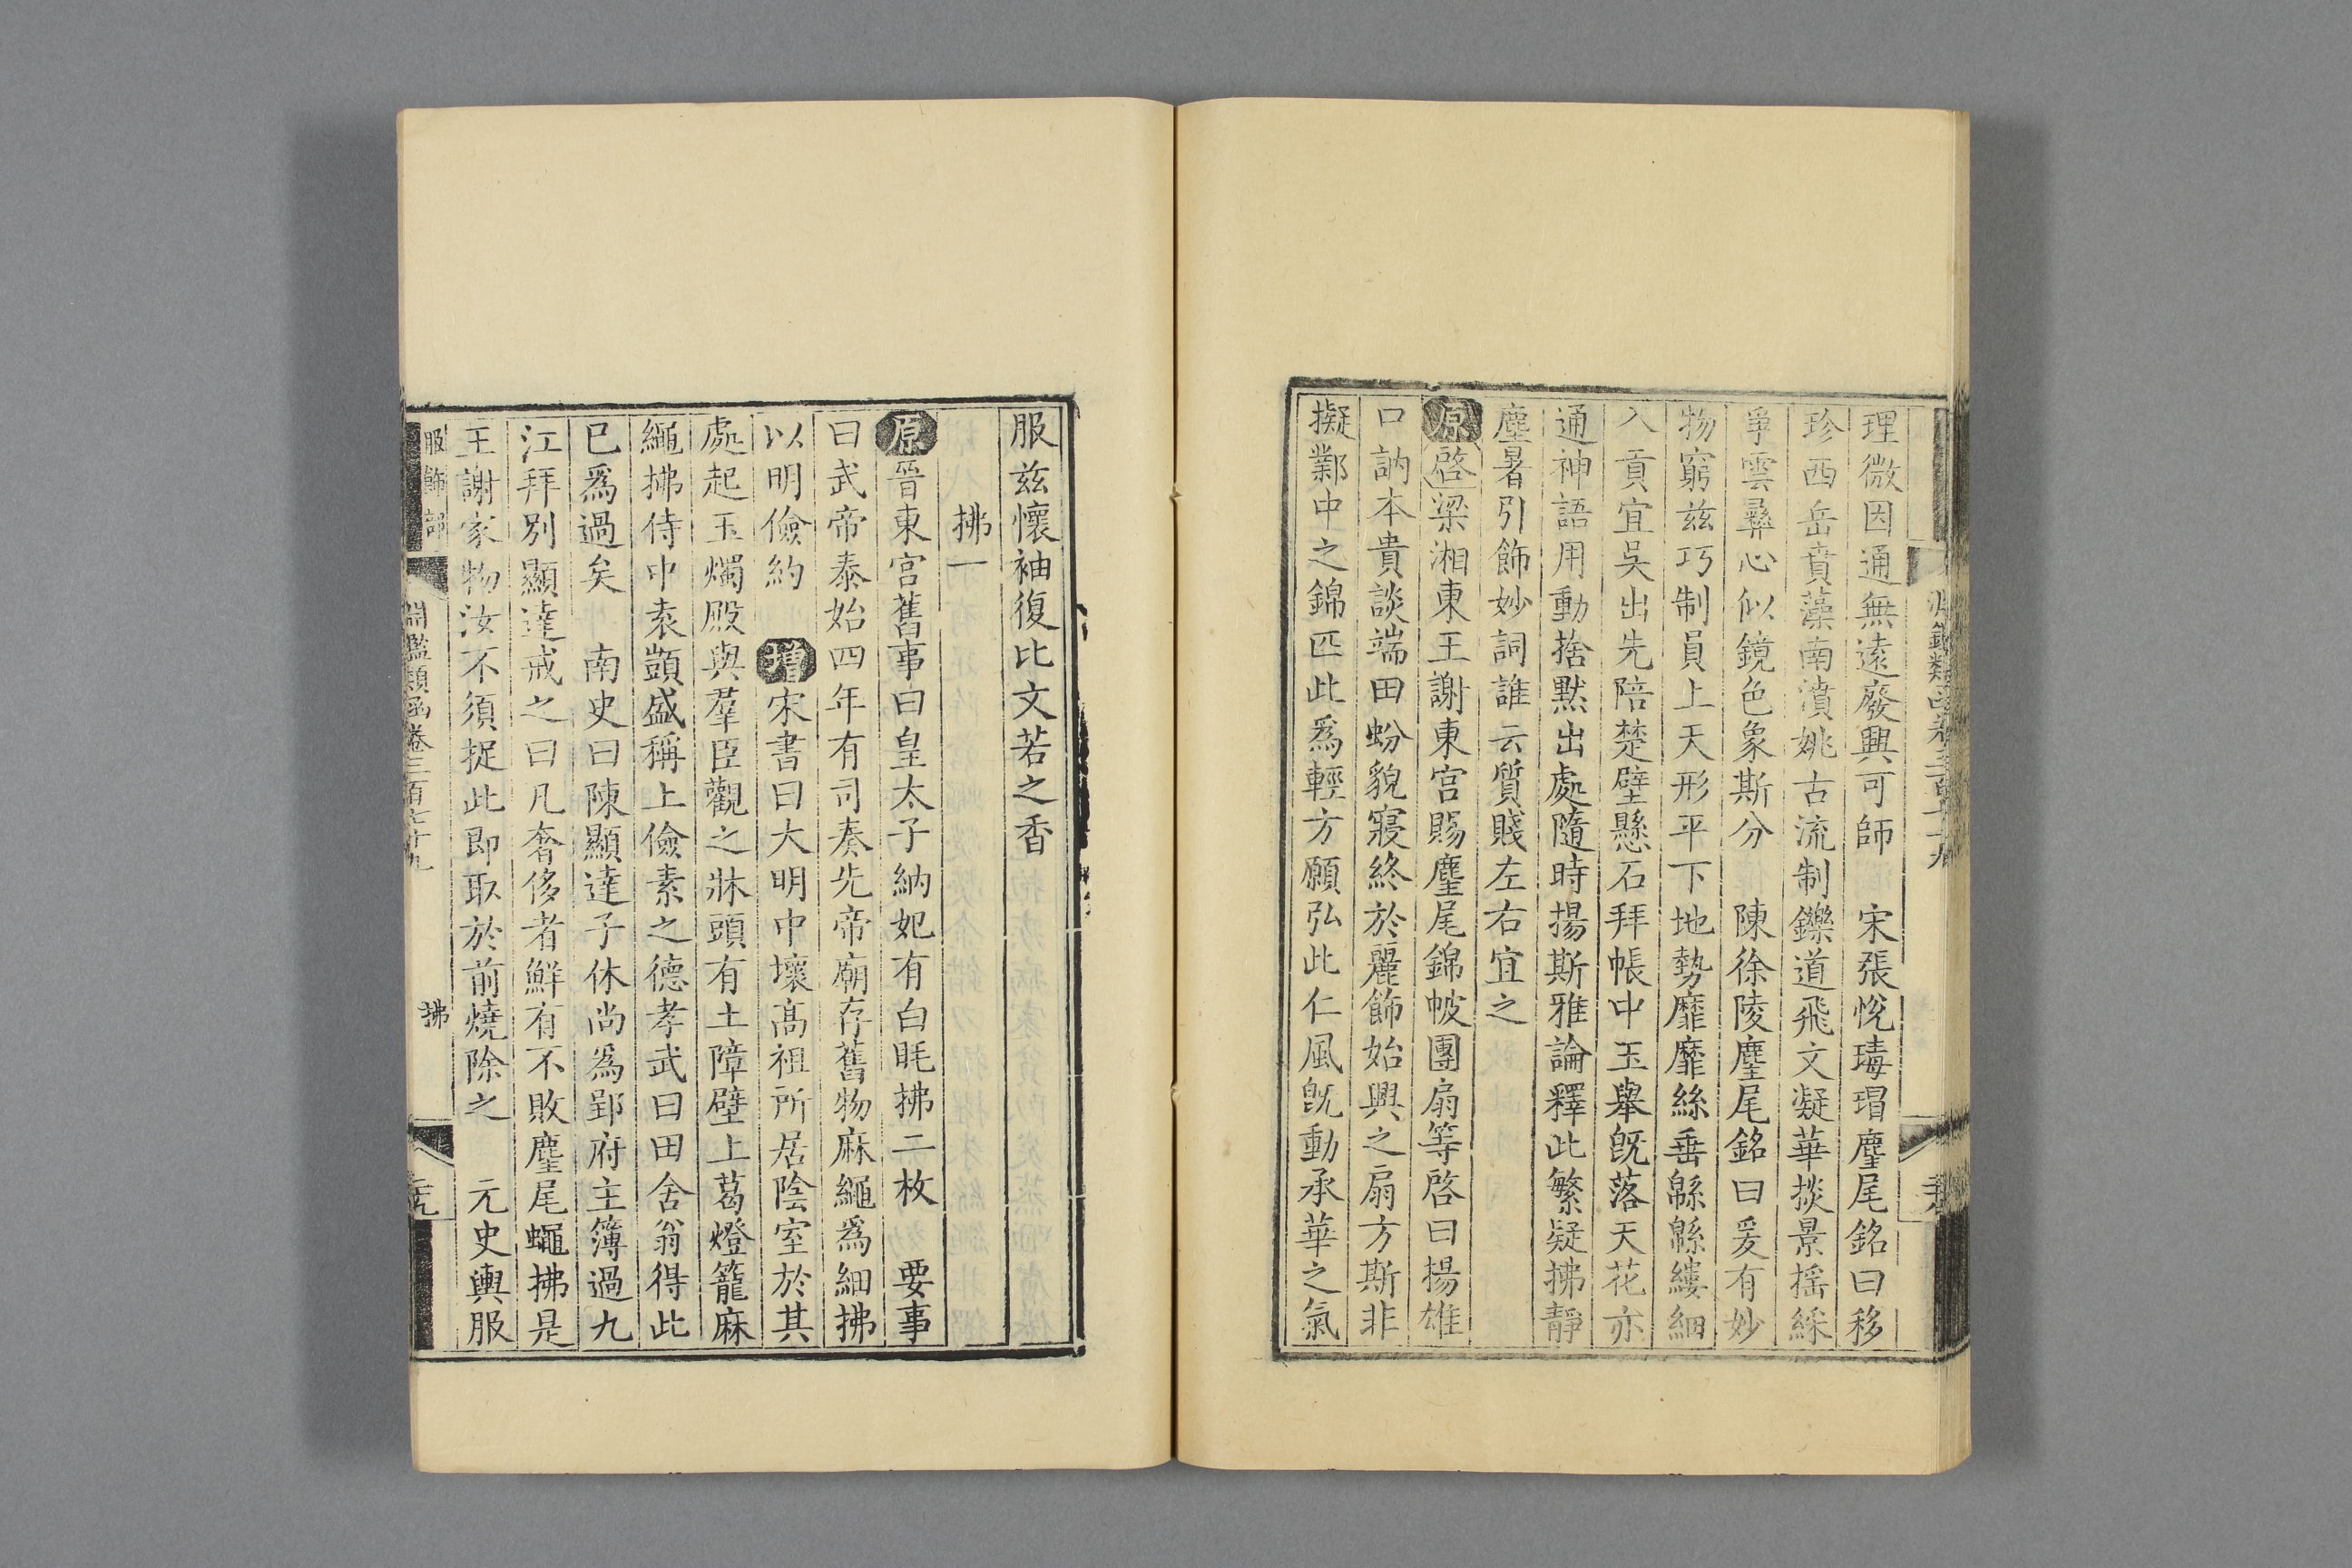 理微因通無遠廢興可師　宋張悅瑇瑁麈尾銘曰移
珍西岳賁藻南濆姚古流制鑠道飛文凝華掞景搖綵
爭雲彛心似鏡色象斯分　陳徐陵麈尾銘曰爰有妙
物窮兹巧制員上天形平下地勢靡靡絲垂緜緜縷細
入貢宜吳出先陪楚壁懸石拜帳中玉舉旣落天花亦
通神語用動捨默出處隨時揚斯雅論釋此繁疑拂靜
塵暑引飾妙詞誰云質賤左右宜之
原啓梁湘東王謝東宮賜麈尾錦帔團扇等啓曰揚雄
口訥本貴談端田蚡貌寢終於麗飾始興之扇方斯非
擬鄴中之錦匹此爲輕方願弘此仁風旣動承華之氣
服兹懷袖復比文若之香
拂一
原晉東宮舊事曰皇太子納妃有白毦拂二枚　要事
曰武帝泰始四年有司奏先帝廟存舊物麻繩爲細拂
以明儉約　增宋書曰大明中壞高祖所居陰室於其
處起玉燭殿與羣臣觀之牀頭有土障壁上葛燈籠麻
繩拂侍中袁顗盛稱上儉素之德孝武曰田舍翁得此
已爲過矣　南史曰陳顯達子休尚爲郢府主簿過九
江拜別顯達戒之曰凡奢侈者鮮有不敗麈尾蠅拂是
王謝家物汝不須捉此即取於前燒除之　元史輿服
服飾部
淵鑑類函卷三百七十九
拂